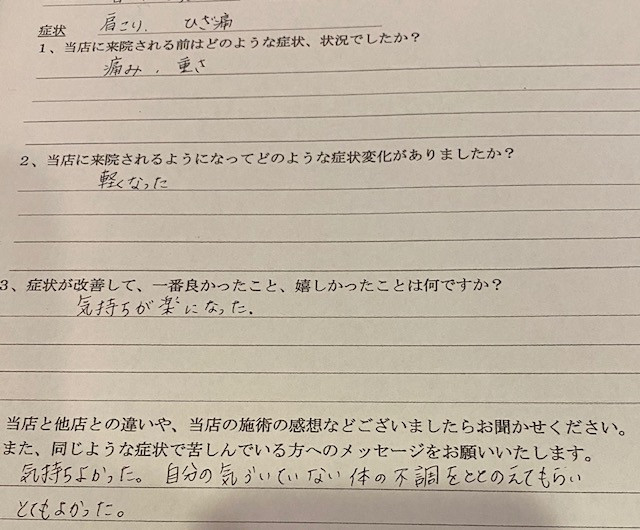 症状 肩こり、ひざ痛
1、当店に来院される前はどのような症状、状況でしたか？
痛み、重さ
2、当店に来院されるようになってどのような症状変化がありましたか？
軽くなった
3、症状が改善して、一番良かったこと、嬉しかったことは何ですか？
気持ちが楽になった.
当店と他店との違いや、当店の施術の感想などございましたらお聞かせください。
また、同じような症状で苦しんでいる方へのメッセージをお願いいたします。
気持ちよかった。自分の気ついていない体の不調をととのえてもらい
とてもよかった。